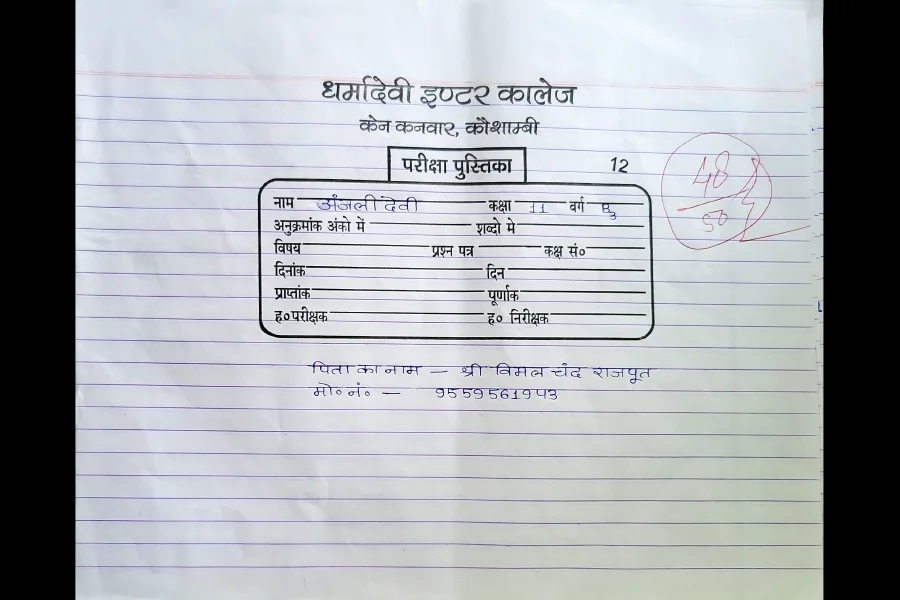 धर्मादेवी इण्टर कालेज
केन कनवार, कौशाम्बी
परीक्षा पुस्तिका 12
नाम अंजली देवी कक्षा 11 वर्ग B3
अनुक्रमांक अंको में शब्दो मे
विषय प्रश्न पत्र कक्ष सं०
दिनांक दिन
प्राप्तांक पूर्णाक
ह०परीक्षक ह० निरीक्षक
पिता का नाम — श्री विमल चंद राजपूत
मो० नं० — 9559561943
48
50